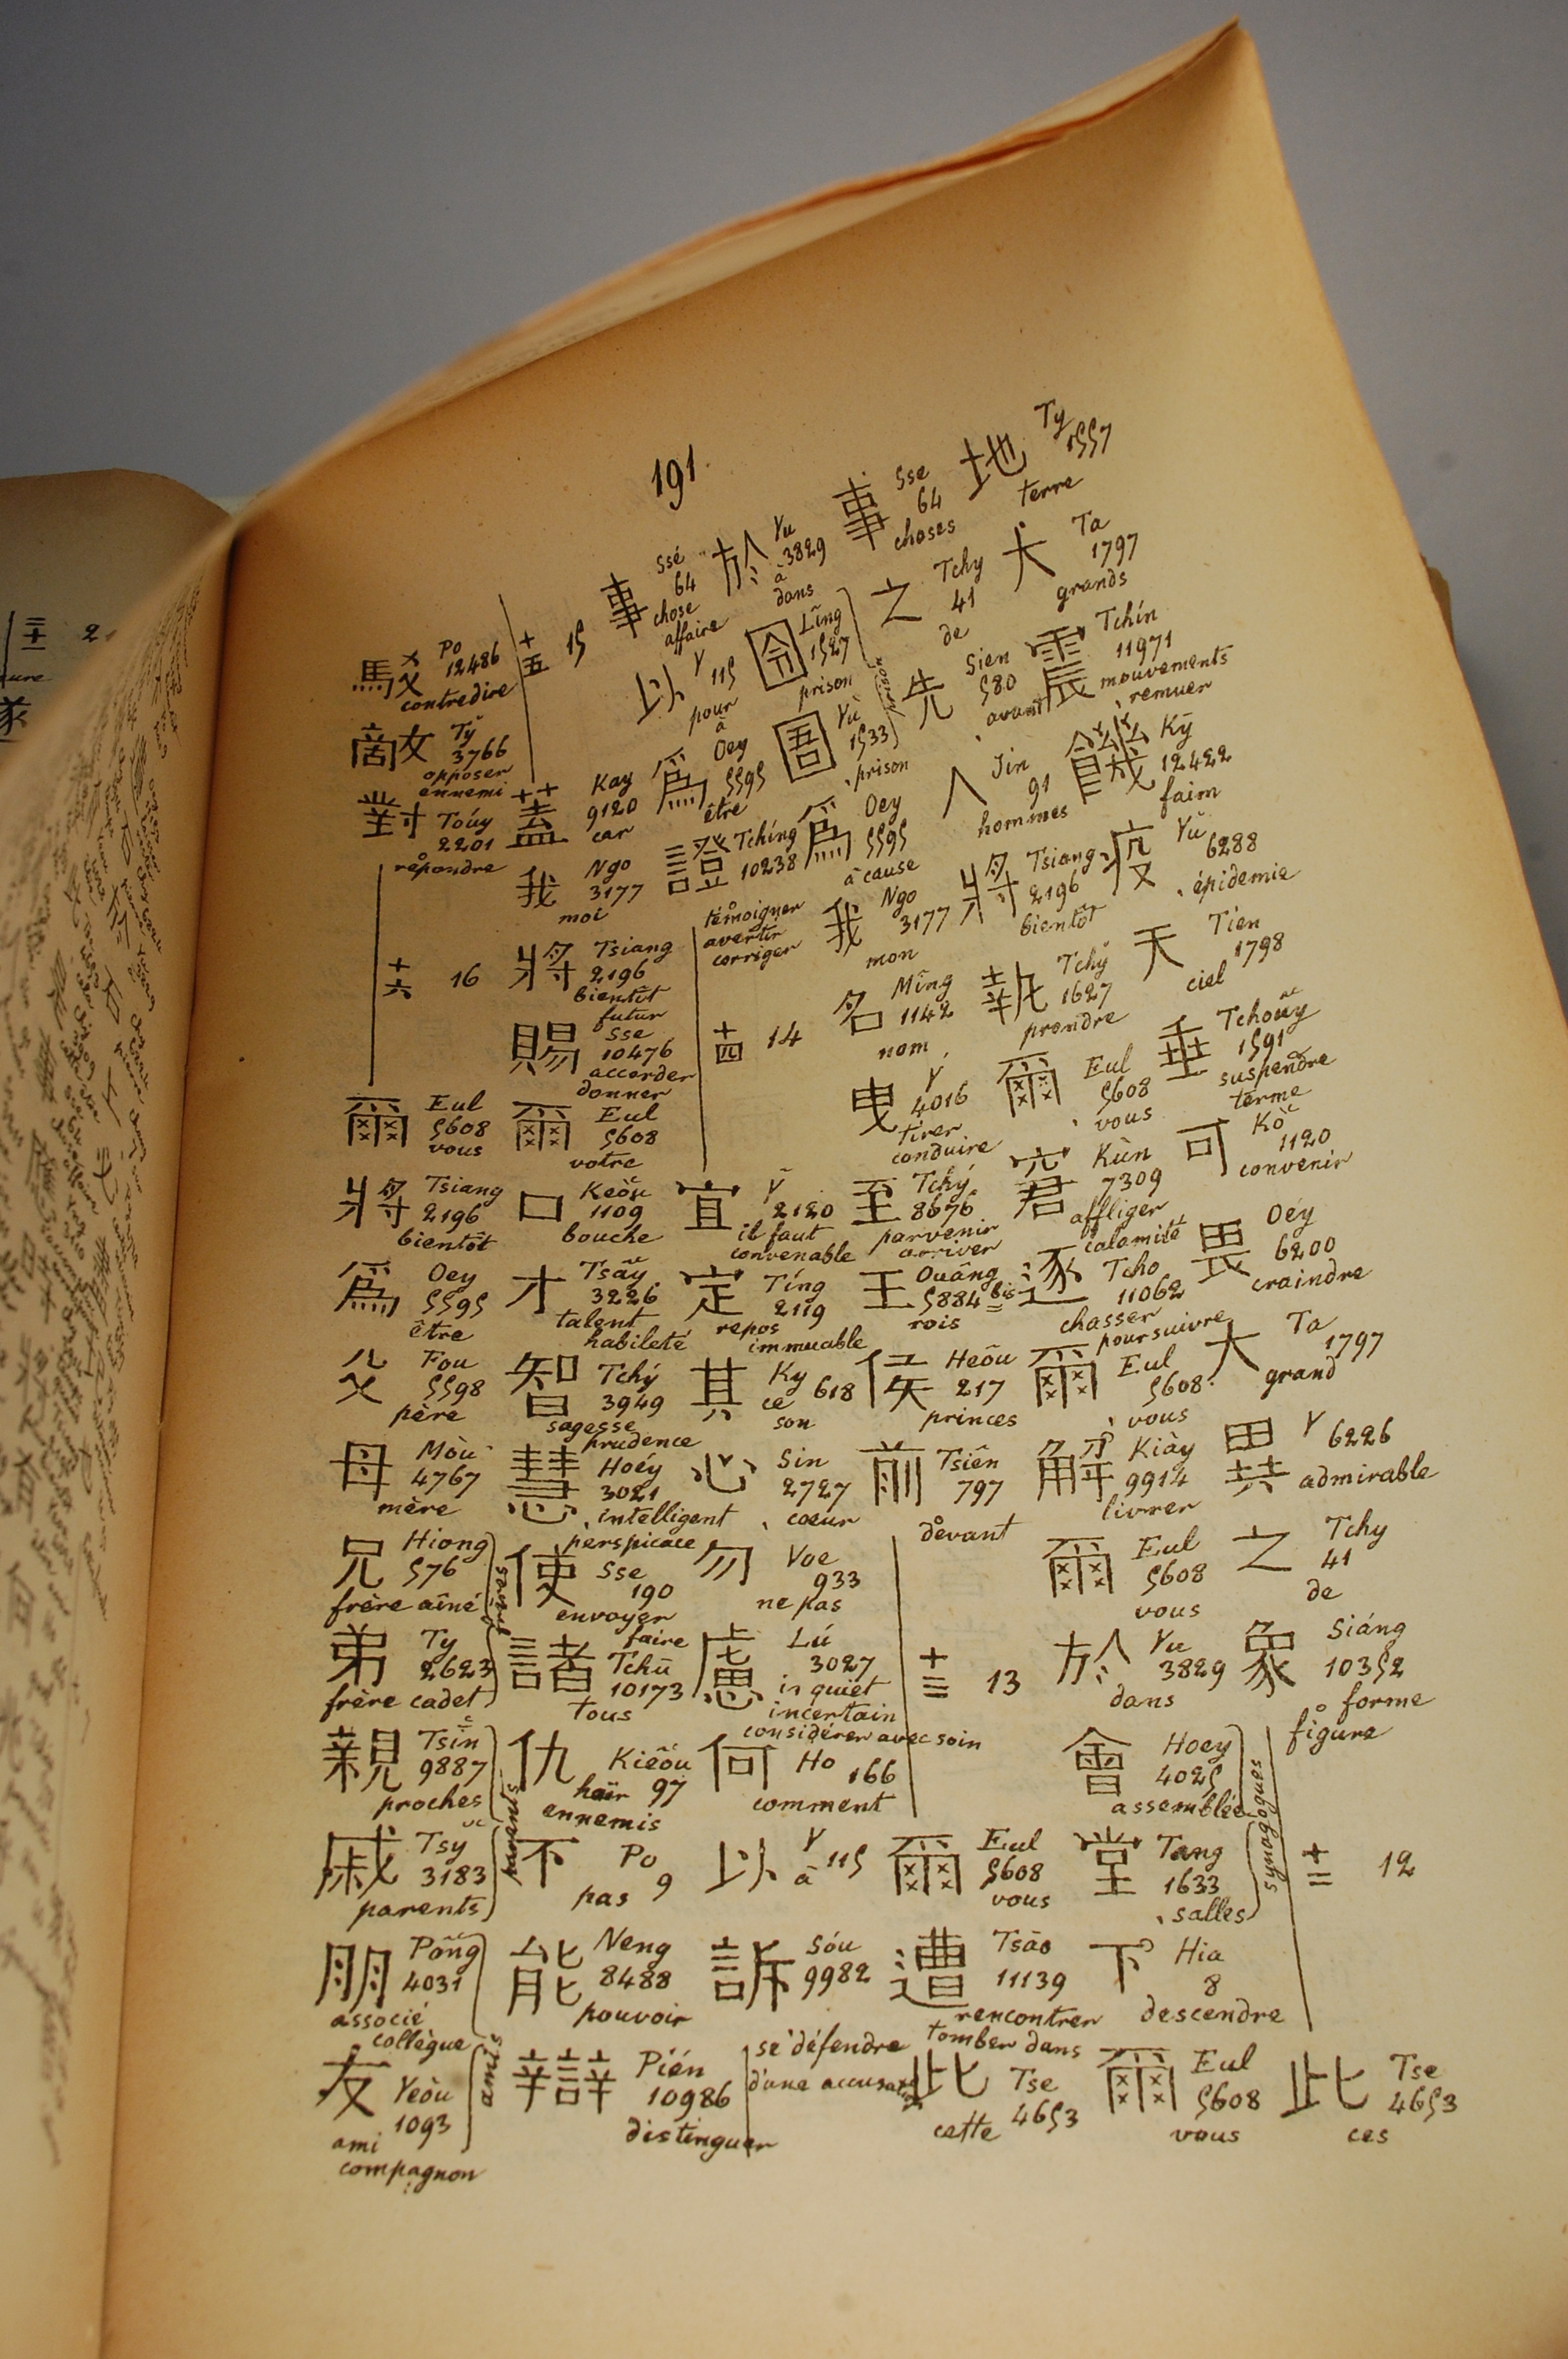 191.
地 Ty
1557
terre
大 Ta
1797
grands
震 Tchín
11971
mouvements
remuer
饑 Ky
12422
faim
疫 Yǔ
6288
épidemie
天 Tien
1798
ciel
垂 Tchoûy
1591
suspendre
terme
可 Kǒ
1120
convenir
畏 Oéy
6200
craindre
大 Ta
1797
grand
異 Y 6226
admirable
之 Tchy
41
de
象 Siáng
10352
forme
figure
十二 12
此 Tse
4653
ces
事 Sse
64
choses
之 Tchy
41
de
先 Sien
580
avant
人 Jin
91
hommes
將 Tsiang
2196
bientôt
執 Tchý
1627
prendre
爾 Eul
5608
vous
窘 Kùn
7309
affliger
calamité
逐 Tcho
11062
chasser
poursuivre
爾 Eul
5608
vous
解 Kiày
9914
livrer
爾 Eul
5608
vous
於 Yu
3829
dans
會 Hoey
4025
assemblée
堂 Tang
1633
salles
synagogues
下 Hia
8
descendre
爾 Eul
5608
vous
於 Yu
3829
à
dans
囹 Lîng
1527
prison
圄 Yù
1533
prison
爲 Oey
5595
à cause
我 Ngo
3177
mon
名 Mîng
1142
nom
曳 Y
4016
tirer
conduire
至 Tchý
8676
parvenir
arriver
王 Ouâng
5884 bis
rois
侯 Heôu
217
princes
前 Tsiên
797
devant
十三 13
爾 Eul
5608
vous
遭 Tsāo
11139
rencontrer
tomber dans
此 Tse
4653
cette
事 Ssé
64
chose
affaire
以 Y
115
pour
à
爲 Oey
5595
être
證 Tchíng
10238
témoigner
avertir
corriger
十四 14
宜 Y
2120
il faut
convenable
定 Tíng
2119
repos
immuable
其 Ky
ce 618
son
心 Sin
2727
coeur
勿 Voe
933
ne pas
慮 Lú
3027
inquiet
incertain
considérer avec soin
何 Ho
166
comment
以 Y
à 115
訴 Sóu
9982
se défendre
d'une accusation
十五 15
蓋 Kay
9120
car
我 Ngo
3177
moi
將 Tsiang
2196
bientôt
futur
賜 Sse
10476
accorder
donner
爾 Eul
5608
votre
口 Keǒu
1109
bouche
才 Tsây
3226
talent
habileté
智 Tchý
3949
sagesse
prudence
慧 Hoéy
3021
intelligent
perspicace
使 Sse
190
envoyer
faire
諸 Tchū
10173
tous
仇 Kieôu
haïr 97
ennemis
不 Po
pas 9
能 Neng
8488
pouvoir
辯 Pién
10986
distinguer
駁 Po
12486
contredire
敵 Tý
3766
opposer
ennemi
對 Toúy
2201
répondre
十六 16
爾 Eul
5608
vous
將 Tsiang
2196
bientôt
爲 Oey
5595
être
父 Fou
5598
père
母 Mòu
4767
mère
兄 Hiong
576
frère aîné
弟 Ty
2623
frère cadet
frères
親 Tsīn
9887
proches
戚 Tsy
3183
parents
parents
朋 Pông
4031
associé
collègue
友 Yeòu
1093
ami
compagnon
amis